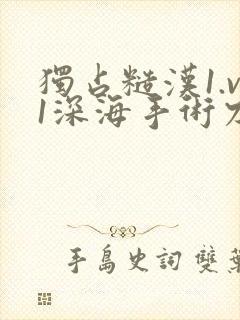 獨占糙漢1.v
1深海手術刀
手島史詞 雙葉